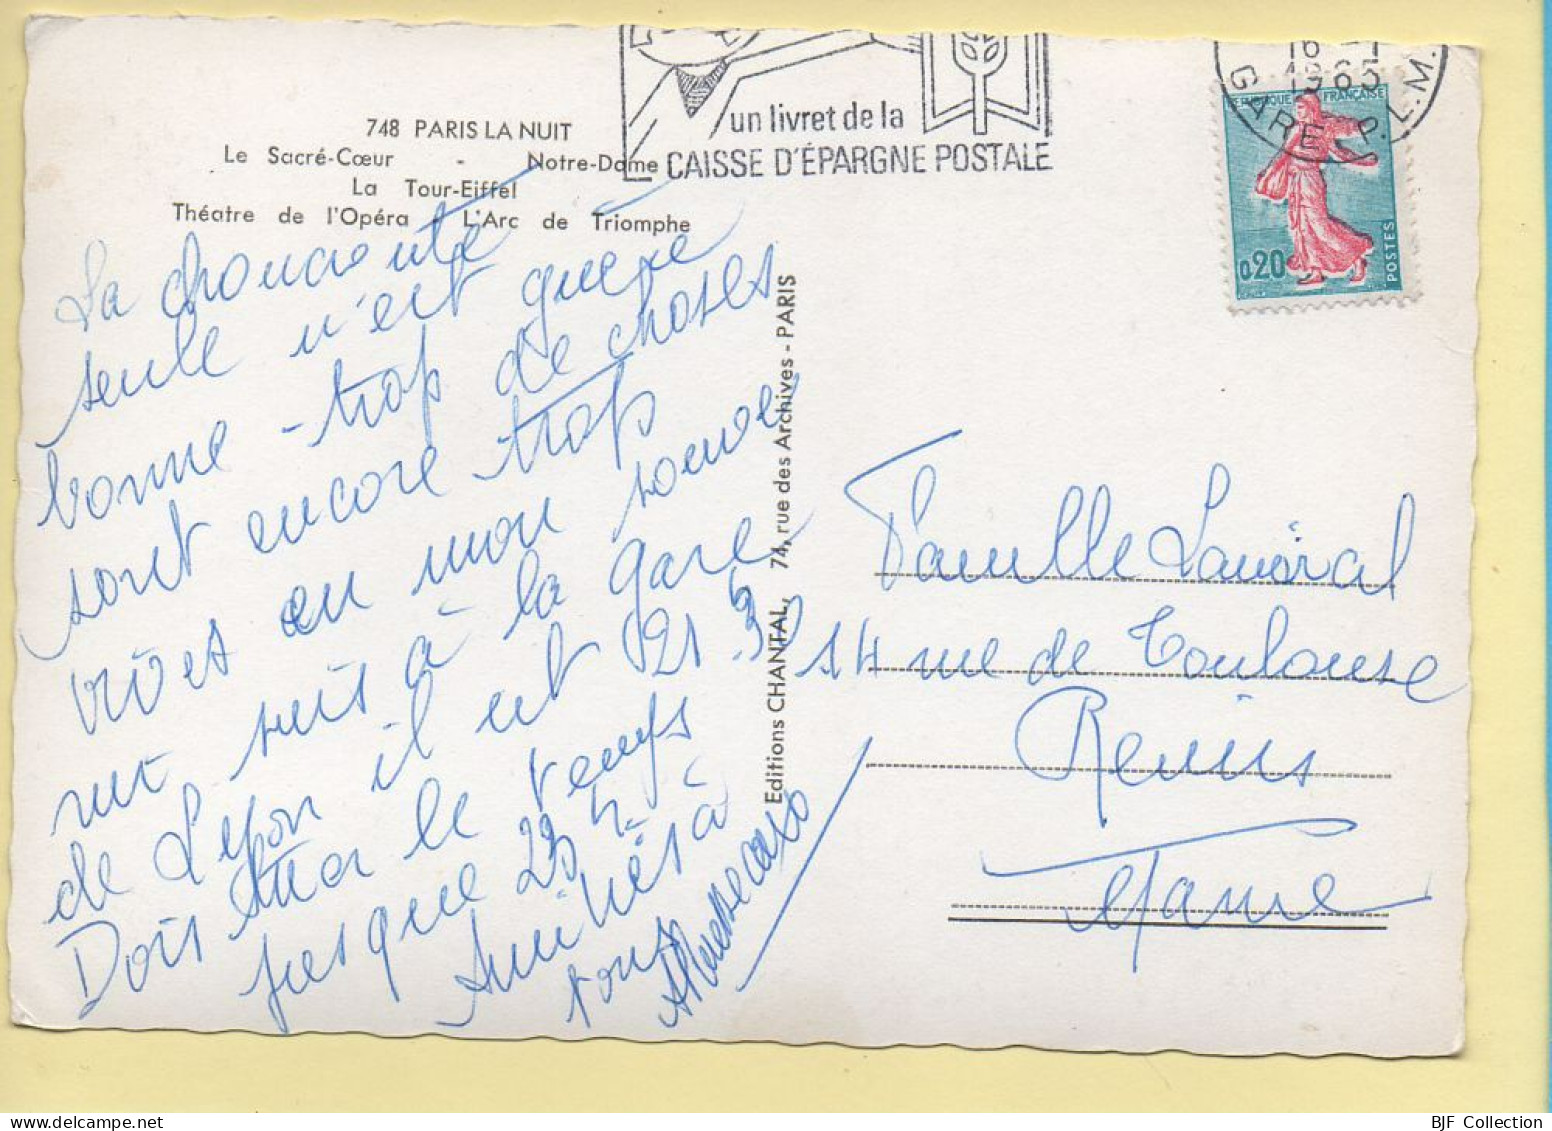 748 PARIS LA NUIT
Le Sacré-Cœur - Notre-Dame
La Tour-Eiffel
Théatre de l'Opéra - L'Arc de Triomphe
un livret de la
CAISSE D'ÉPARGNE POSTALE
16 - 1
1965
GARE P.L.M.
RÉPUBLIQUE FRANÇAISE
0,20
POSTES
La choucroute
seule n'est guère
bonne - trop de choses
sont encore trop
en mon
suis à la gare
de Lyon il est 21h 30
Dois tuer le temps
jusque 23h.
Amitiés à
tous
Editions CHANTAL, 74, rue des Archives - PARIS
Famille
14 rue de Toulouse
Reims
Marne
BJF Collection